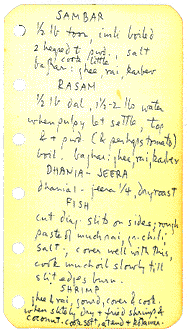 SAMBAR
1/2 lb toor, imli boiled
2 heaped t. pwd., salt
cook little
baghar: ghee, rai, karber
RASAM
1/2 lb dal, 1 1/2-2 lb water
when pulpy let settle, top
& + pwd. (& perhaps tomato)
boil. baghar: ghee, rai, karber
DHANIA-JEERA
dhania 1 - jeera 1/4, dry roast
FISH
cut diag. slits on sides; rough
paste of much rai, r. chili
salt. cover well with this,
cook much oil slowly till
slit edges burn.
SHRIMP
ghee & rai, gourd, cover & cook.
when slightly dry + fried shrimp &
coconut. cook soft, stand +